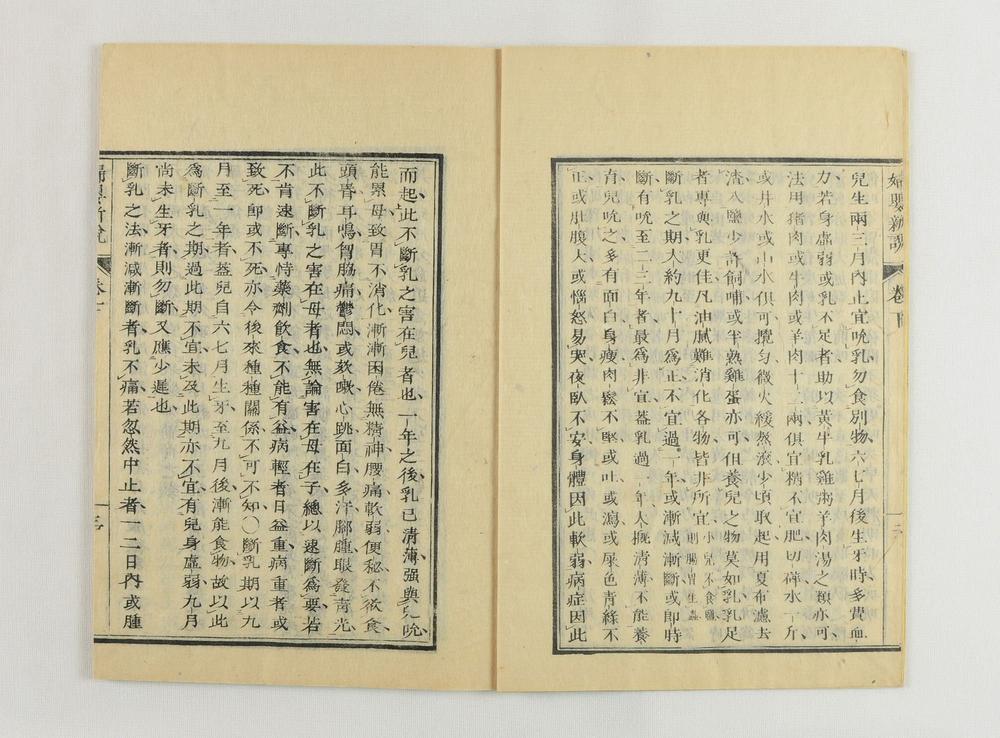 婦嬰新說
卷下
兒生兩三月內止宜吮乳勿食別物六七月後生牙時多費血
力若身虛弱或乳不足者助以黃牛乳雞粥羊肉湯之類亦可
法用猪肉或牛肉或羊肉十二兩俱宜精不宜肥切碎水一斤
或井水或山水俱可攪勻微火緩熬滾少頃取起用夏布濾去
渣入鹽少許飼哺或半熟雞蛋亦可但養兒之物莫如乳乳足
者專與乳更佳凡油膩難消化各物皆非所宜小兒不食鹽則腸胃生蟲
斷乳之期大約九十月為正不宜過一年或漸減漸斷或卽時
斷有吮至二三年者最為非宜蓋乳過一年人概清薄不能養
育兒吮之多有面白身瘦肉鬆不堅或吐或瀉或屎色青綠不
正或肚腹大或惱怒易哭夜臥不安身體因此軟弱病症因此
而起此不斷乳之害在兒者也一年之後乳已清薄强與兒吮
能累母致胃不消化漸漸困倦無精神腰痛軟弱便秘不欲食
頭暈耳鳴胃脇痛鬱悶或欬嗽心跳面白多汗腳腫眼發青光
此不斷乳之害在母者也無論害在母在子總以速斷為要若
不肯速斷專恃藥劑飲食不能有益病輕者日益重病重者或
致死卽或不死亦令後來種種關係不可不知○斷乳期以九
月至一年者蓋兒自六七月生牙至九月後漸能食物故以此
為斷乳之期過此期不宜未及此期亦不宜有兒身虛弱九月
尚未生牙者則勿斷又應少遲也
斷乳之法漸減漸斷者乳不痛若忽然中止者一二日內或腫
婦嬰新說